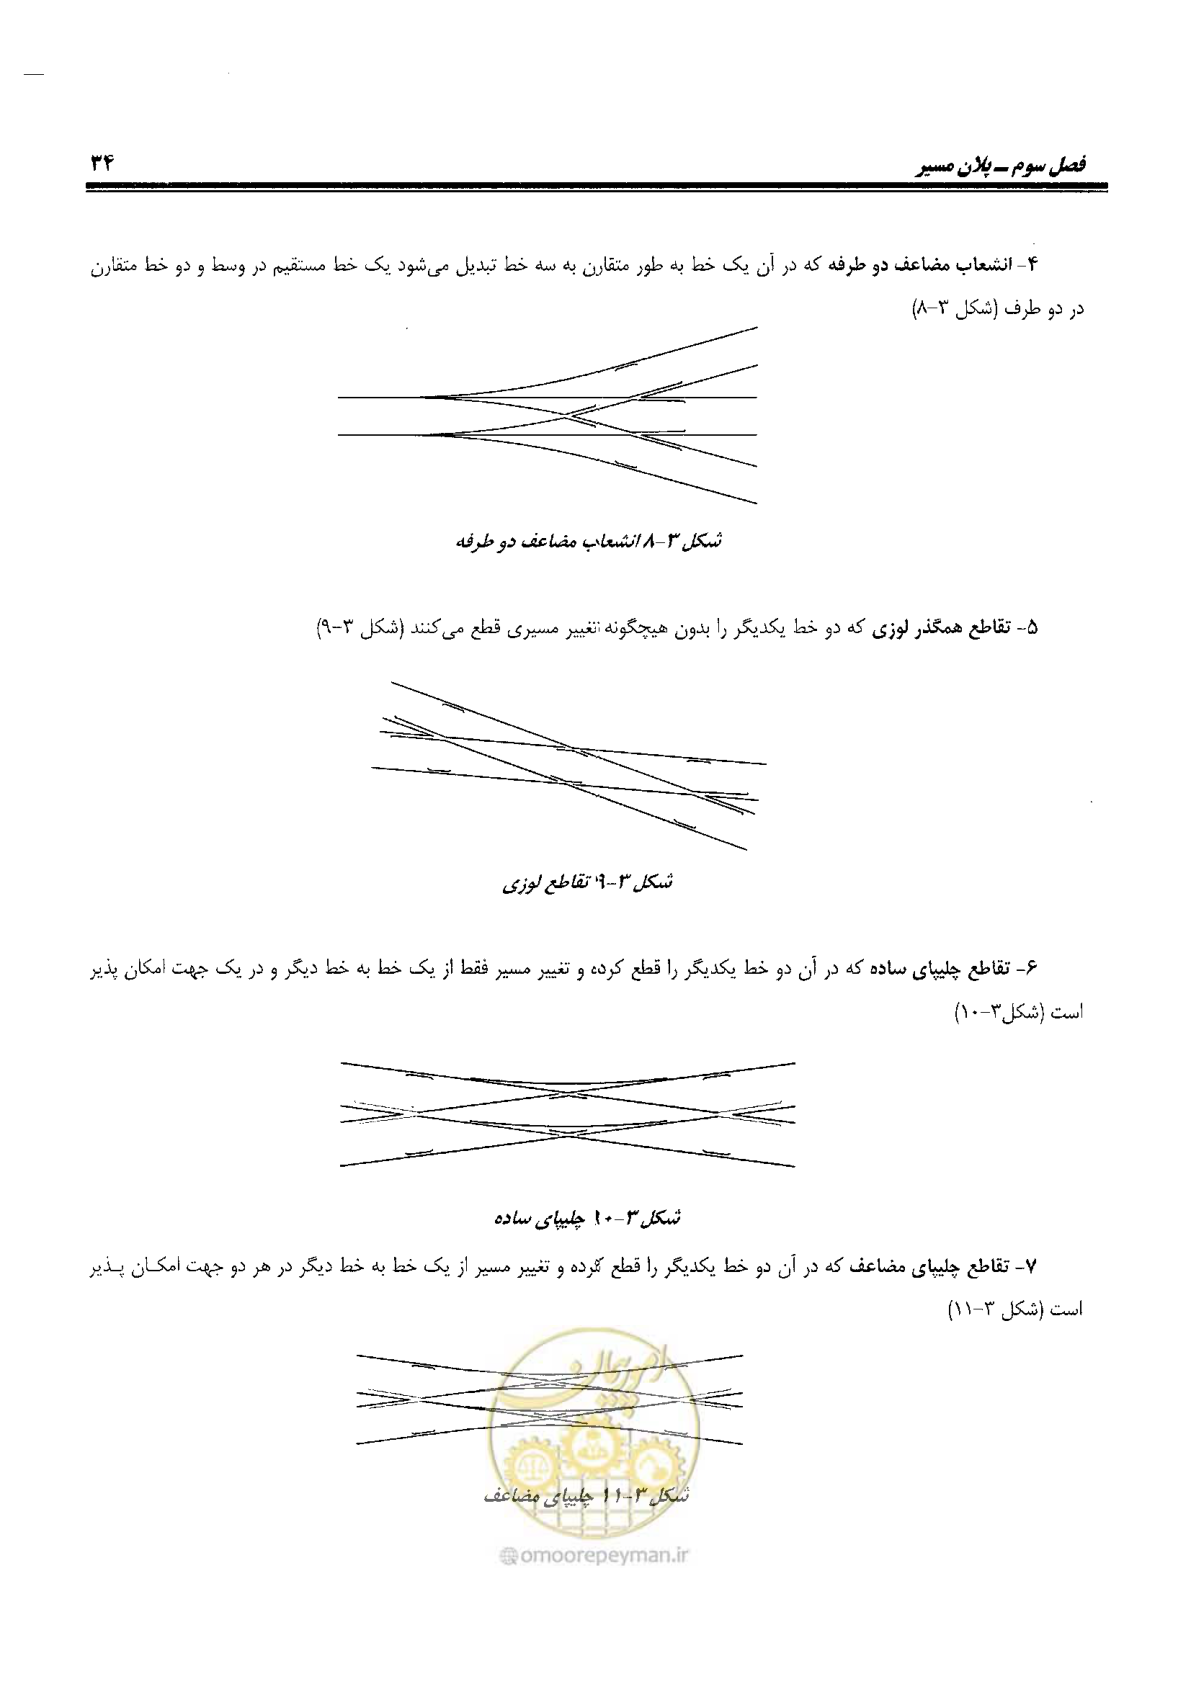 فصل سوم – پلان مسیر
۳۴
۴- انشعاب مضاعف دو طرفه که در آن یک خط به طور متقارن به سه خط تبدیل می‌شود یک خط مستقیم در وسط و دو خط متقارن
در دو طرف (شکل ۳-۸)
شکل ۳-۸ انشعاب مضاعف دو طرفه
۵- تقاطع همگذر لوزی که دو خط یکدیگر را بدون هیچگونه تغییر مسیری قطع می‌کنند (شکل ۳-۹)
شکل ۳-۹ تقاطع لوزی
۶- تقاطع چلیپای ساده که در آن دو خط یکدیگر را قطع کرده و تغییر مسیر فقط از یک خط به خط دیگر و در یک جهت امکان پذیر
است (شکل۳-۱۰)
شکل ۳-۱۰ چلیپای ساده
۷- تقاطع چلیپای مضاعف که در آن دو خط یکدیگر را قطع کرده و تغییر مسیر از یک خط به خط دیگر در هر دو جهت امکـان پـذیر
است (شکل ۳-۱۱)
امور پیمان
شکل ۳-۱۱ چلیپای مضاعف
omoorepeyman.ir